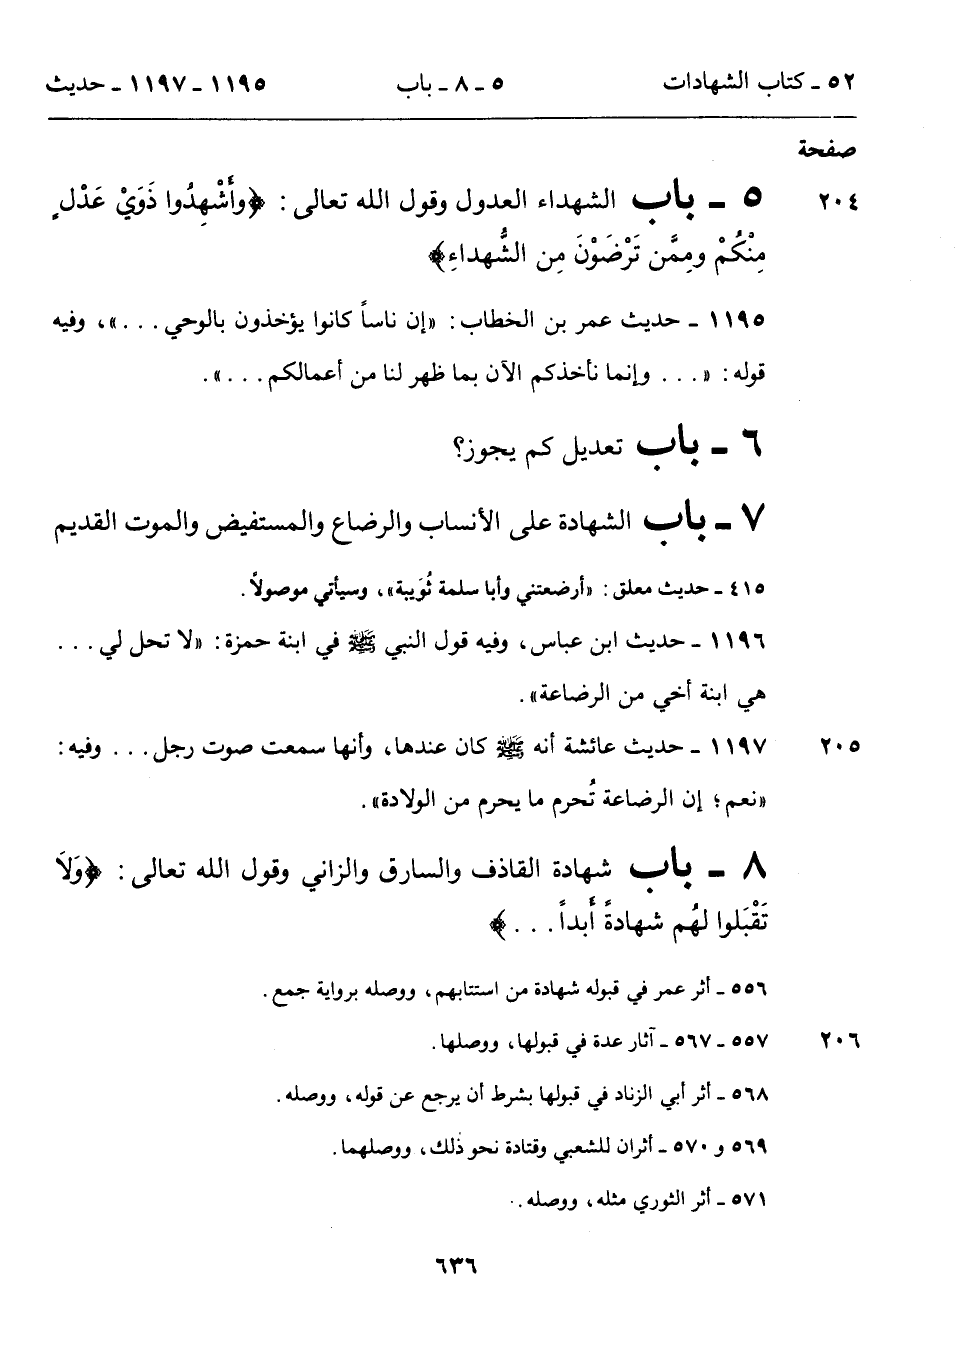 ٥٢ ـ كتاب الشهادات ٥ ـ ٨ ـ باب ١١٩٥ ـ ١١٩٧ ـ حديث
صفحة
٢٠٤ ٥ ـ باب الشهداء العدول وقول الله تعالى: ﴿وأَشْهِدُوا ذَوَيْ عَدْلٍ
مِنْكُمْ ومِمَّن تَرْضَوْنَ مِن الشُّهداءِ﴾
١١٩٥ ـ حديث عمر بن الخطاب: «إن ناساً كانوا يؤخذون بالوحي...»، وفيه
قوله: «... وإنما نأخذكم الآن بما ظهر لنا من أعمالكم...».
٦ ـ باب تعديل كم يجوز؟
٧ ـ باب الشهادة على الأنساب والرضاع والمستفيض والموت القديم
٤١٥ ـ حديث معلق: «أرضعتني وأبا سلمة ثُوَيبة»، وسيأتي موصولاً.
١١٩٦ ـ حديث ابن عباس، وفيه قول النبي ﷺ في ابنة حمزة: «لا تحل لي...
هي ابنة أخي من الرضاعة».
٢٠٥ ١١٩٧ ـ حديث عائشة أنه ﷺ كان عندها، وأنها سمعت صوت رجل... وفيه:
«نعم؛ إن الرضاعة تُحرم ما يحرم من الولادة».
٨ ـ باب شهادة القاذف والسارق والزاني وقول الله تعالى: ﴿وَلَا
تَقْبَلوا لهُم شهادةً أَبداً...﴾
٥٥٦ ـ أثر عمر في قبوله شهادة من استتابهم، ووصله برواية جمع.
٢٠٦ ٥٥٧ ـ ٥٦٧ ـ آثار عدة في قبولها، ووصلها.
٥٦٨ ـ أثر أبي الزناد في قبولها بشرط أن يرجع عن قوله، ووصله.
٥٦٩ و ٥٧٠ ـ أثران للشعبي وقتادة نحو ذلك، ووصلهما.
٥٧١ ـ أثر الثوري مثله، ووصله.
٦٣٦